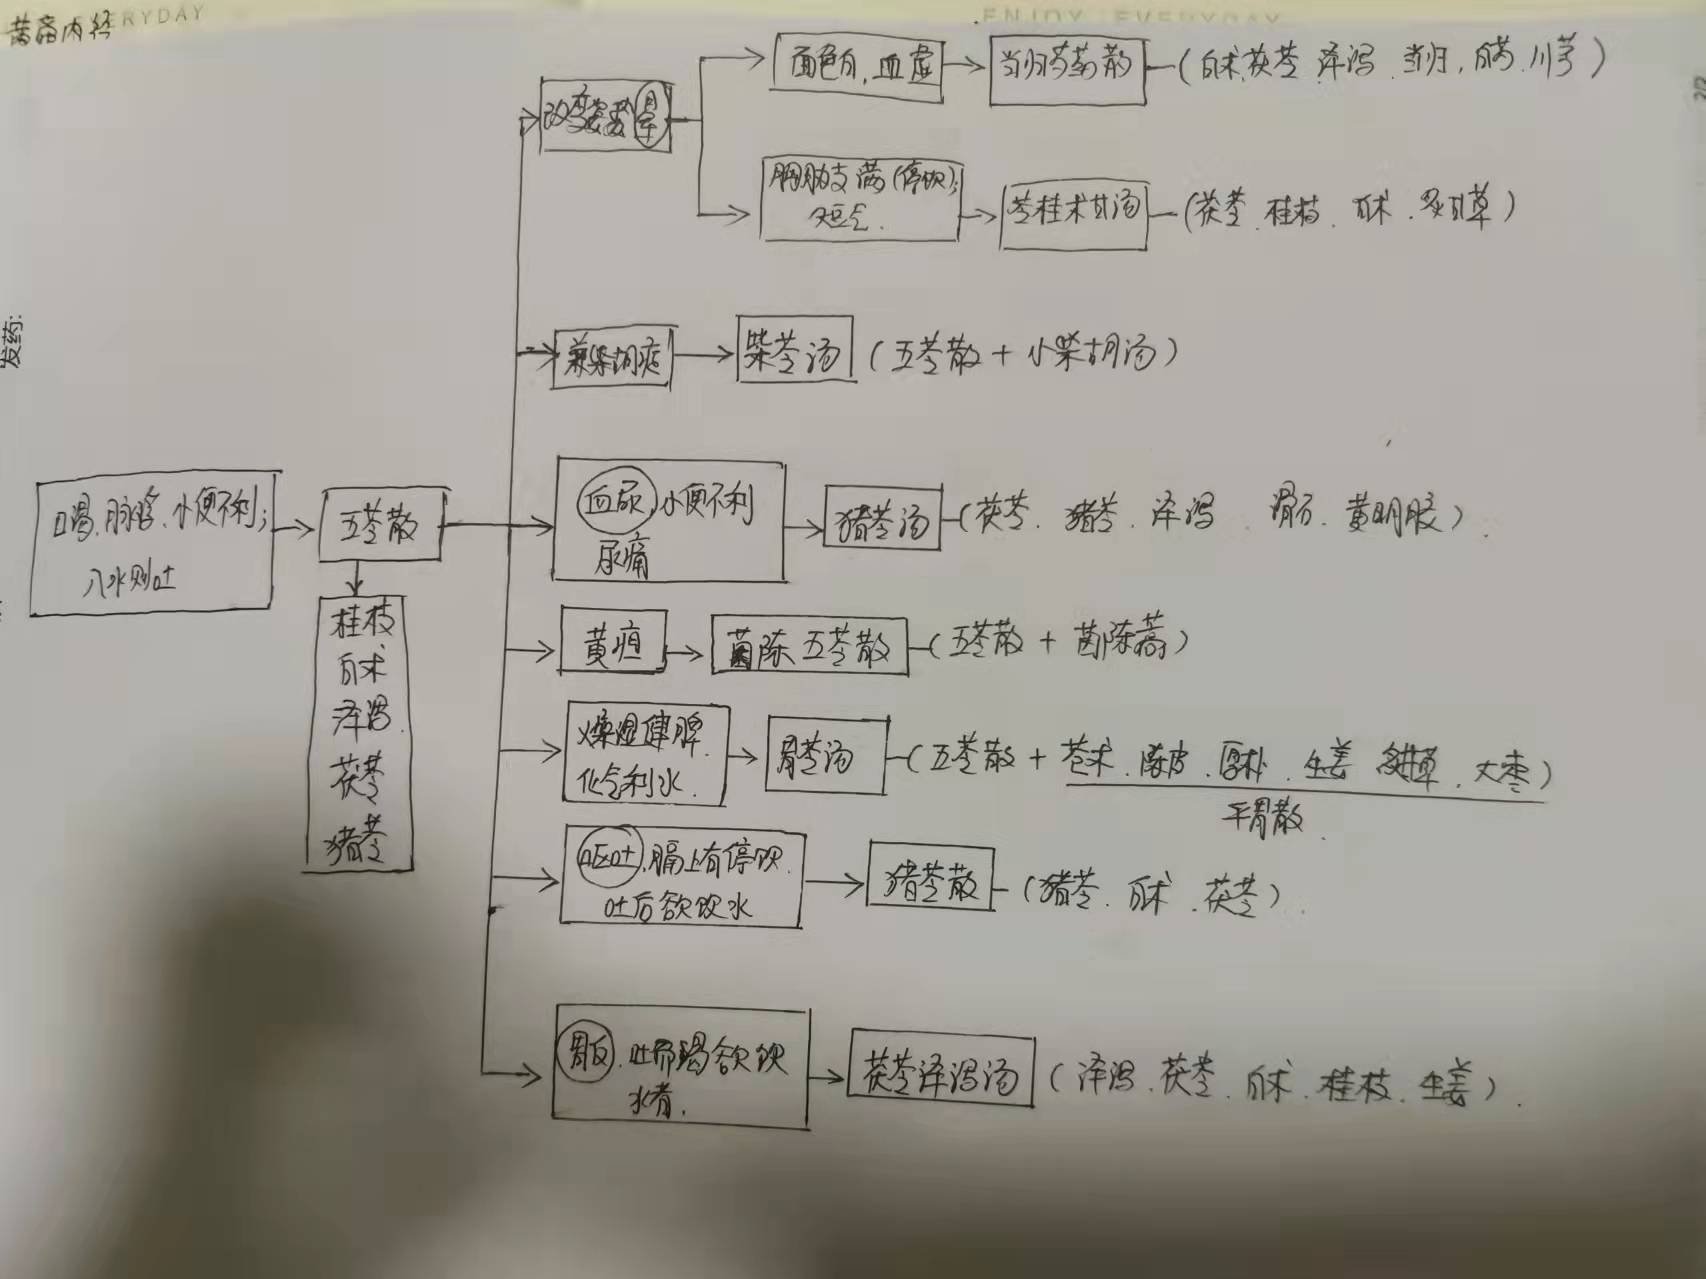 黄帝内经
ERYDAY
ENJOY EVERYDAY
发药:
口渴、脉浮、小便不利;
入水则吐
五苓散
桂枝
白术
泽泻
茯苓
猪苓
改变姿势晕
面色白,血虚
当归芍药散
(白术、茯苓、泽泻、当归、白芍、川芎)
胸胁支满(停饮);
短气.
苓桂术甘汤
(茯苓、桂枝、白术、炙甘草)
兼柴胡症
柴苓汤
(五苓散+小柴胡汤)
血尿,小便不利
尿痛
猪苓汤
(茯苓、猪苓、泽泻 滑石、黄明胶).
黄疸
茵陈五苓散
(五苓散+茵陈蒿)
燥湿健脾.
化气利水.
胃苓汤
(五苓散+苍术、陈皮、厚朴、生姜 炙甘草、大枣)
平胃散.
呕吐,膈上有停饮.
吐后欲饮水
猪苓散
(猪苓、白术、茯苓).
胃反.吐而渴欲饮
水者.
茯苓泽泻汤
(泽泻、茯苓、白术、桂枝、生姜).